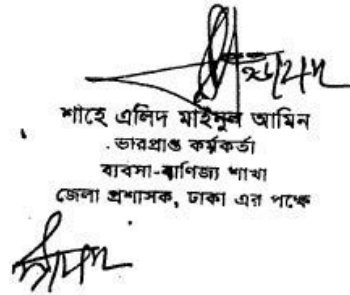 শাহে এলিদ মাইনুল আমিন
ভারপ্রাপ্ত কর্মকর্তা
ব্যবসা-বাণিজ্য শাখা
জেলা প্রশাসক, ঢাকা এর পক্ষে